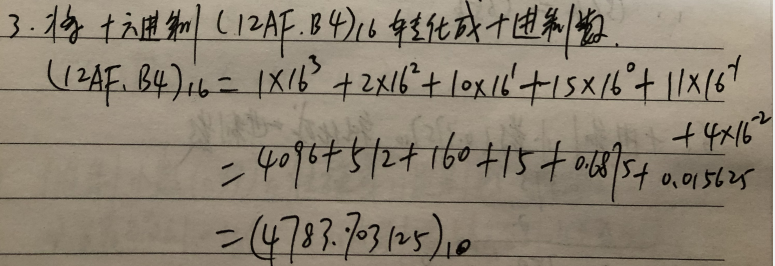 3. 将十六进制(12AF.B4)₁₆转化成十进制数.
(12AF.B4)₁₆ = 1×16³ + 2×16² + 10×16¹ + 15×16⁰ + 11×16⁻¹
+ 4×16⁻²
= 4096 + 512 + 160 + 15 + 0.6875 + 0.015625
= (4783.703125)₁₀